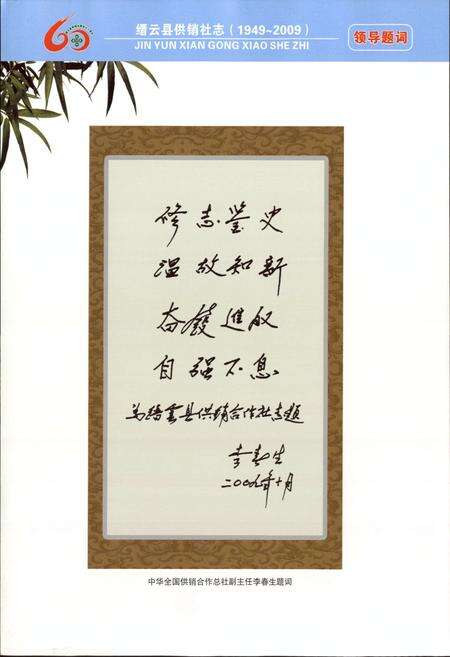 60
缙云县供销社志（1949~2009）
JIN YUN XIAN GONG XIAO SHE ZHI
领导题词
修志鉴史
温故知新
奋發進取
自强不息
为缙雲县供销合作社志题
李春生
二〇〇九年十月
中华全国供销合作总社副主任李春生题词